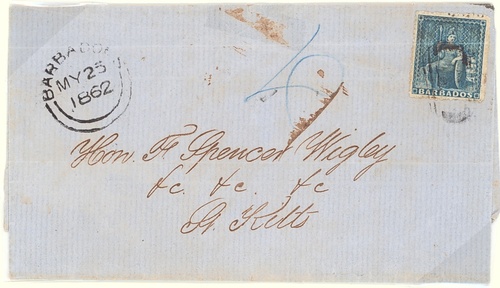 BARBADOS
MY 25
1862
4
BARBADOS
Hon. F Spencer Wigley
&c. &c. &c
St. Kitts